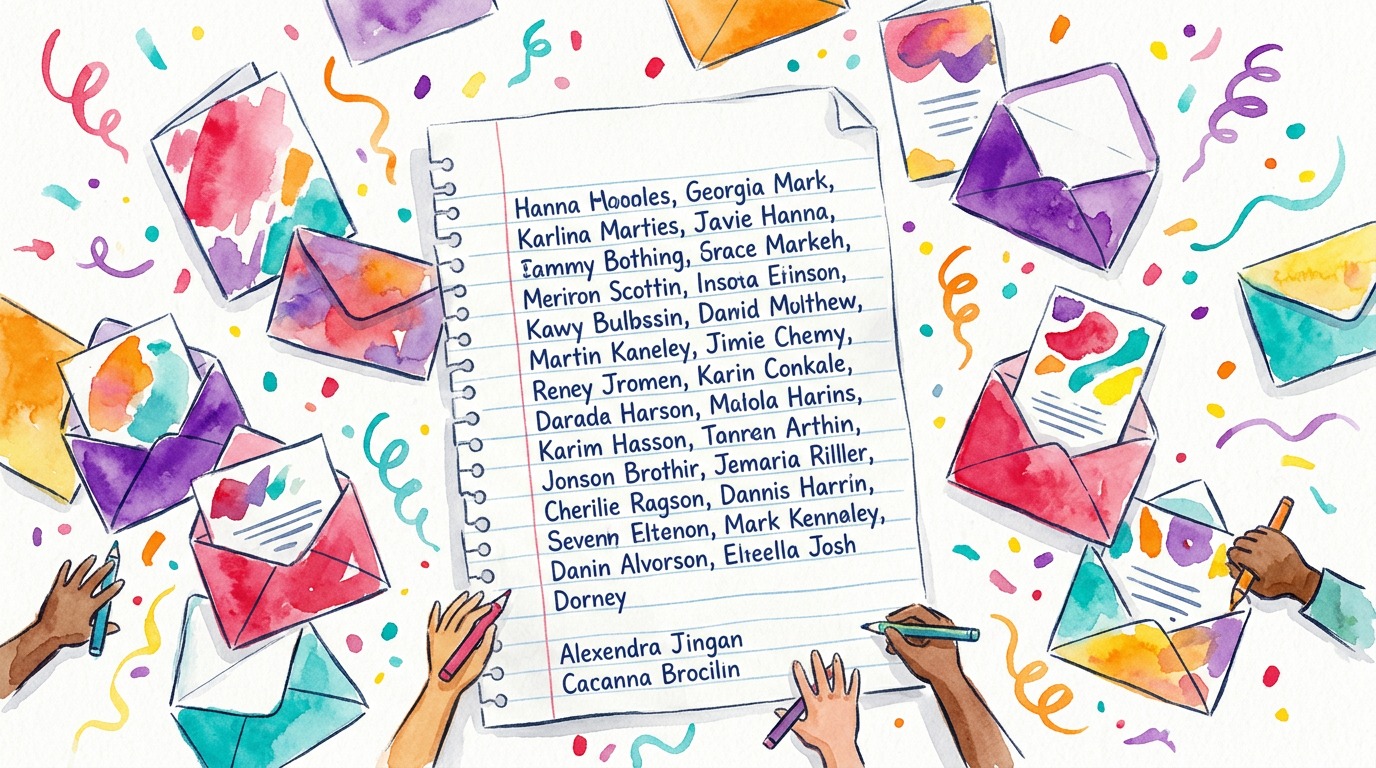 Hanna Hoooles, Georgia Mark,
Karlina Marties, Javie Hanna,
Tammy Bothing, Srace Markeh,
Meriron Scottin, Insota Etinson,
Kawy Bulbssin, David Molthew,
Martin Kaneley, Jimie Chemy,
Reney Jromen, Karin Conkale,
Darada Harson, Malola Harins,
Karim Hasson, Tanren Arthin,
Jonson Brothir, Jemaria Rilller,
Cherilie Ragson, Dannis Harrin,
Sevenn Eltenon, Mark Kennaley,
Danin Alvorson, Elteella Josh
Dorney
Alexendra Jingan
Cacanna Brocilin